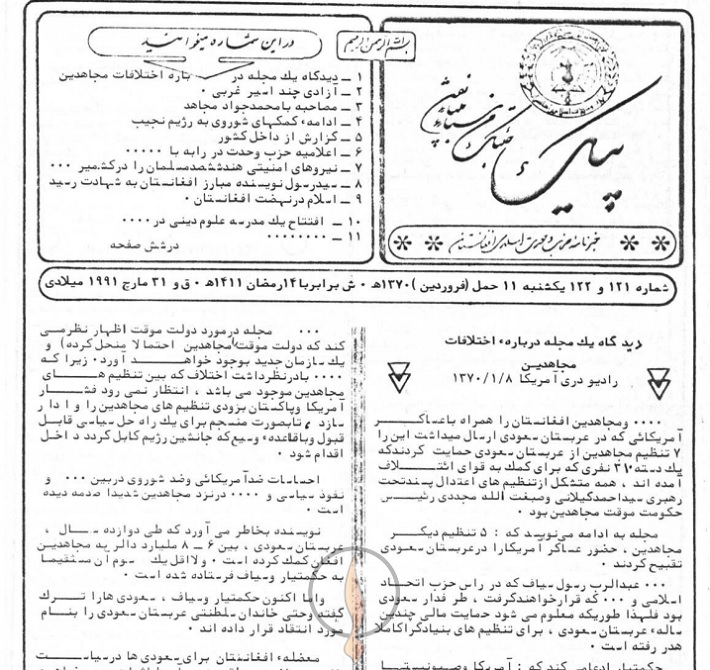 بسم الله الرحمن الرحیم
در این شماره میخوانید
۱ ــ دیدگاه یك مجله در باره اختلافات مجاهدین
۲ ــ آزادی چند اسیر غربی ۰
۳ ــ مصاحبه بامحمدجواد مجاهد
۴ ــ ادامهء کمکهای شوروی به رژیم نجیب
۵ ــ گزارش از داخل کشور
۶ ــ اعلامیه حزب وحدت در رابه با ۰۰۰۰۰
۷ ــ نیروهای امنیتی هندششصدمسلمان را درکشمیر ۰۰۰
۸ ــ سیدرسول نویسنده مبارز افغانستان به شهادت رسید
۹ ــ اسلام درنهضت افغانستان ۰
۱۰ ــ افتتاح یك مدرسه علوم دینی در ۰۰۰۰
۱۱ ــ ۰۰۰۰۰۰۰۰۰
درشش صفحه
پیام
خبرنامه حزب وحدت اسلامی افغانستان
شماره ۱۲۱ و ۱۲۲ یکشنبه ۱۱ حمل (فروردین) ۱۳۷۰ه ۰ ش برابربا ۱۴رمضان ۱۴۱۱ه ۰ ق و ۳۱ مارچ ۱۹۹۱ میلادی
دید گاه یك مجله دربارهء اختلافات
مجاهدین
رادیو دری آمریکا ۱۳۷۰/۱/۸
۰۰۰۰ ومجاهدین افغانستان را همراه باعساکـــر
آمریکائی که در عربستان سعودی ارسال میداشت این را
۷ تنظیم مجاهدین از عربستان سعودی حمایت کردندکه
یك دسته ۳۱۰ نفری که برای کمك به قوای ائتـــلاف
آمده اند ، همه متشکل ازتنظیم های اعتدال پسندتحت
رهبری سیداحمدگیلانی وصبغت الله مجددی رئیــس
حکومت موقت مجاهدین بود ۰
مجله به ادامه می‌نویسد که : ۵ تنظیم دیگـــر
مجاهدین ، حضور عساکر آمریکارا درعربستان سعودی
تقبیح کردند ۰
۰۰۰ عبدالرب رسول سیاف که در راس حزب اتحـاد
اسلامی و ۰۰۰ که قرارخواهندگرفت ، طرفدار سعودی
بود فلهذا طوریکه معلوم می شود حمایت مالی چندین
سالهء عربستان سعودی ، برای تنظیم های بنیادگراکاملا
هدر رفته است ۰
حکمتیار ادعامی کندکه : آمریکا وصهیونیستهـا
۰۰۰ مجله درمورد دولت موقت اظهار نظرمی
کند که دولت موقت مجاهدین احتمالا منحل کرده) و
یك سازمان جدید بوجود خواهـــد آورد۰ زیرا کـه
۰۰۰۰ بادرنظرداشت اختلاف که بین تنظیم هـــای
مجاهدین موجود می باشد ، انتظار نمی رود فشـــار
آمریکا وپاکستان بزودی تنظیم های مجاهدین را و ا د ا ر
سازد ، تابصورت منسجم برای یك راه حل سیاسی قابـل
قبول وباقاعدهء وسیع که جانشین رژیم کابل گردد د اخـل
اقدام شود ۰
احساسات ضدآمریکائی وضد شوروی دربین ۰۰۰ و
نفوذ سیاسی و ۰۰۰۰ درنزد مجاهدین شدیدا صدمه دیده
است ۰
نویسنده بخاطر می آورد که طی دوازده ســـال ،
عربستان سعودی ، بین ۶ ــ ۸ ملیارد دالر به مجاهدیـن
افغان کمك کرده است ۰ ولااقل یك سوم آن مستقیما
به حکمتیار وسیاف فرستاده شده است ۰
واما اکنون حکمتیار وسیاف ، سعودی هارا تـــرك
گفته وحتی خاندان سلطنتی عربستان سعودی را بنــام
مورد انتقاد قرار داده اند ۰
معضلهء افغانستان برای سعودی ها درسیاســـت